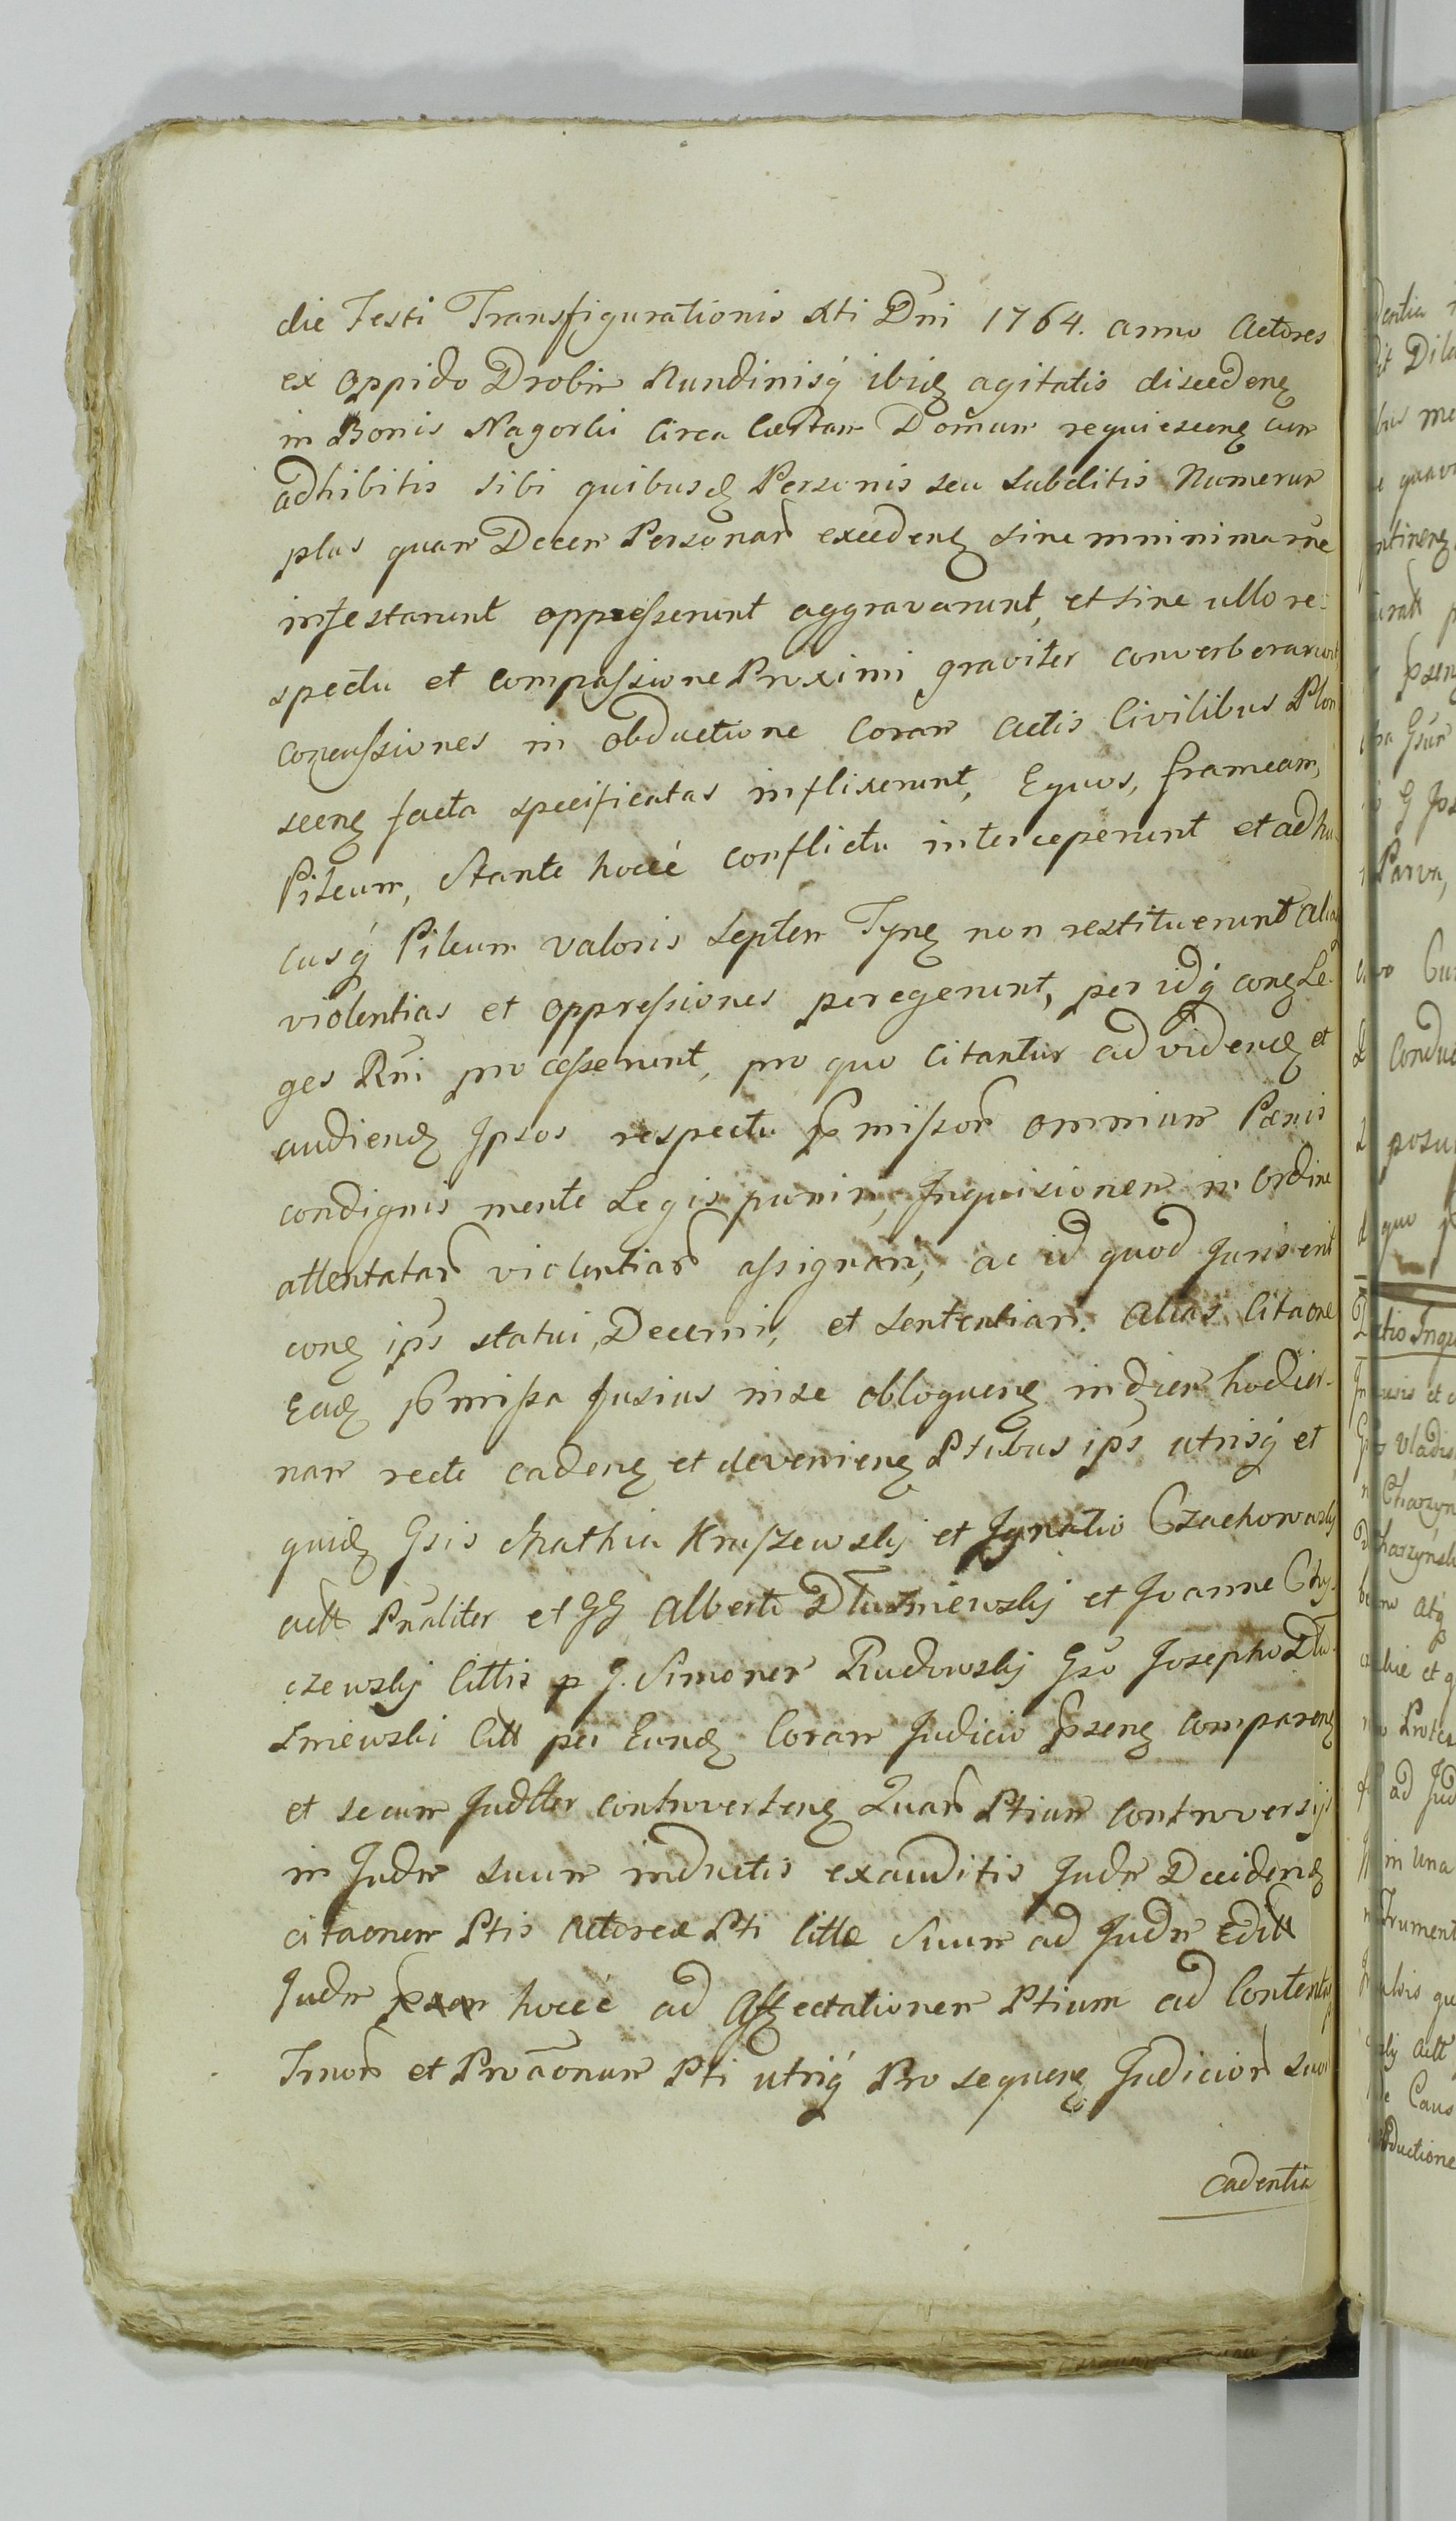 die Festi Transfigurationis Xti Dni 1764. anno Actores
ex Oppido Drobin Nundinisq ibidz agitatis discedenz
in Bonis Nagorki Circa Certam Domum requiescenz cum
adhibitis sibi quibusdz Personis seu Subditis Numerum
plus quam Decem Personar excedenz sine mninima rne
infestarunt oppresserunt aggravarunt, et sine ullo re:
spectu et compassione Proximi graviter converberarunt
concussiones in obductione Coram Actis Civilibus Plon
scenz facta specificatas inflixerunt, Equos, frameam,
Pileum, Stante hocce conflictu interceperunt et adhu
cusq Pileum valoris Septem Tynz non restituerunt alia
violentias et oppressiones peregerunt, per idq conz Le
ges Rni processerunt, pro quo Citantur ad videndz et
audiendz Ipsos respectu pmissor omnium Pænis
condignis mente Legis puniri, Inquisitionem in Ordine
attentatar violentiar assignari, ac id quod Juris erit
conz ips statui, Decerni, et Sententiari. Alias Citaone
Eadz pmissa fusius in se obloquenz in diem hodier-
nam recte cadenz et devenienz Ptibus ips utrisq et
quidz Gsis Mathia Kraszewskj et Ignatio Czachowskj
actt Pnaliter et GG Alberto Dłuzniewskj et Joanne Chy-
czewskj Cittis p G. Simonem Rudowskj Gso Josepho Dłu-
zniewski Citt per Eundz Coram Judicio psenz comparenz
et secum Judtter controvertenz Quar Ptium Controversijs
in Judm suum inductis exauditis Judm Decidendz
citaonem Ptis Actoreæ Pti Cittæ Suum ad Judm Editt
Judm hocce ad Affectationem Ptium ad Contenta
Tmor et Proaonum Pti utriq Prosequenz Judicior suor
Cadentia